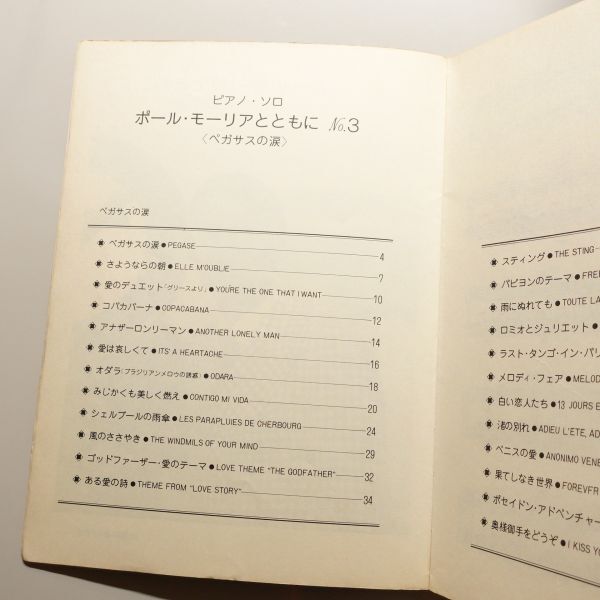 ピアノ・ソロ
ポール・モーリアとともに No.3
〈ペガサスの涙〉
ペガサスの涙
ペガサスの涙●PEGASE 4
さようならの朝●ELLE M'OUBLIE 7
愛のデュエット「グリースより」●YOU'RE THE ONE THAT I WANT 10
コパカバーナ●COPACABANA 12
アナザーロンリーマン●ANOTHER LONELY MAN 14
愛は哀しくて●ITS' A HEARTACHE 16
オダラ(ブラジリアンメロウの誘惑)●ODARA 18
みじかくも美しく燃え●CONTIGO MI VIDA 20
シェルブールの雨傘●LES PARAPLUIES DE CHERBOURG 24
風のささやき●THE WINDMILS OF YOUR MIND 29
ゴッドファーザー・愛のテーマ●LOVE THEME "THE GODFATHER" 32
ある愛の詩●THEME FROM "LOVE STORY" 34
スティング●THE STING
パピヨンのテーマ●FREE
雨にぬれても●TOUTE LA
ロミオとジュリエット●
ラスト・タンゴ・イン・パリ
メロディ・フェア●MELOD
白い恋人たち●13 JOURS E
渚の別れ●ADIEU L'ETE, AD
ベニスの愛●ANONIMO VENE
果てしなき世界●FOREVER
ポセイドン・アドベンチャー
奥様御手をどうぞ●I KISS YO